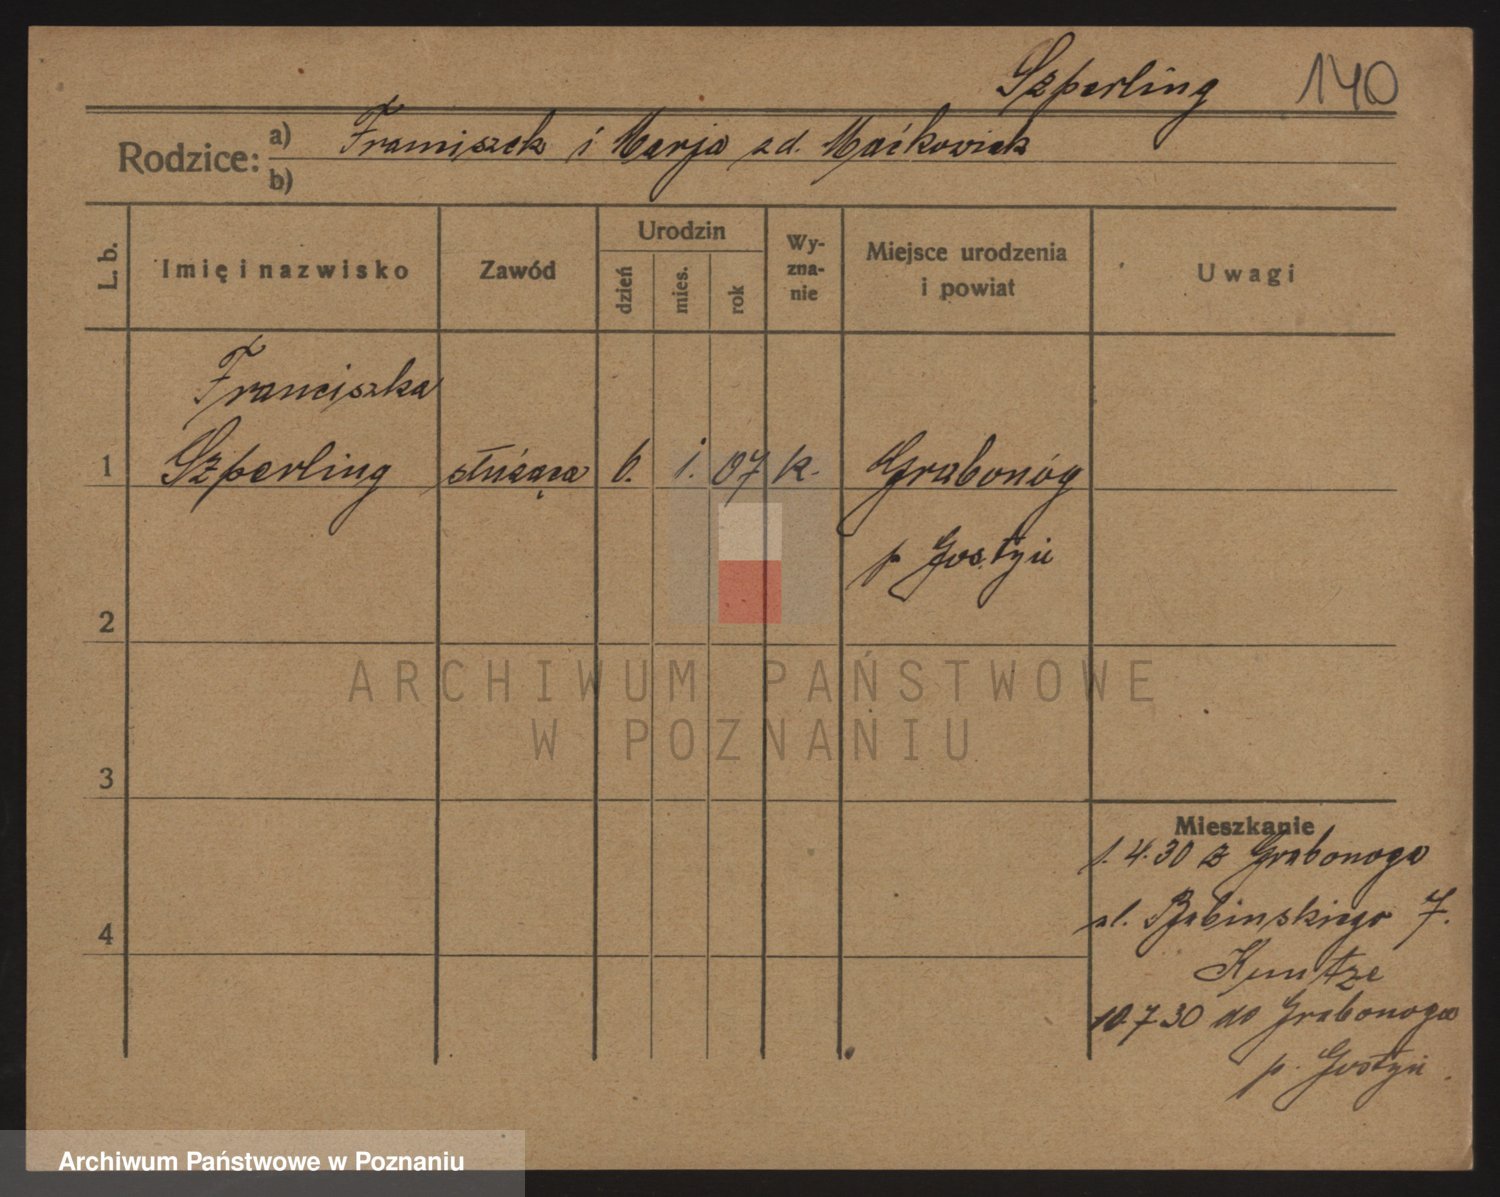 Szperling 140
Rodzice: a) Franciszek i Marja zd. Maćkowiak
b)
L. b. Imię i nazwisko Zawód Urodzin dzień mies. rok Wyzna-nie Miejsce urodzenia i powiat Uwagi
Franciszka
1 Szperling służąca 6. 1. 07 k. Grabonóg
p Gostyń
2
ARCHIWUM PAŃSTWOWE
W POZNANIU
3
Mieszkanie
1.4.30 z Grabonoga
ul. Babinskiego 7.
4
Kuntze
10.7.30 do Grabonoga
p. Gostyń
Archiwum Państwowe w Poznaniu